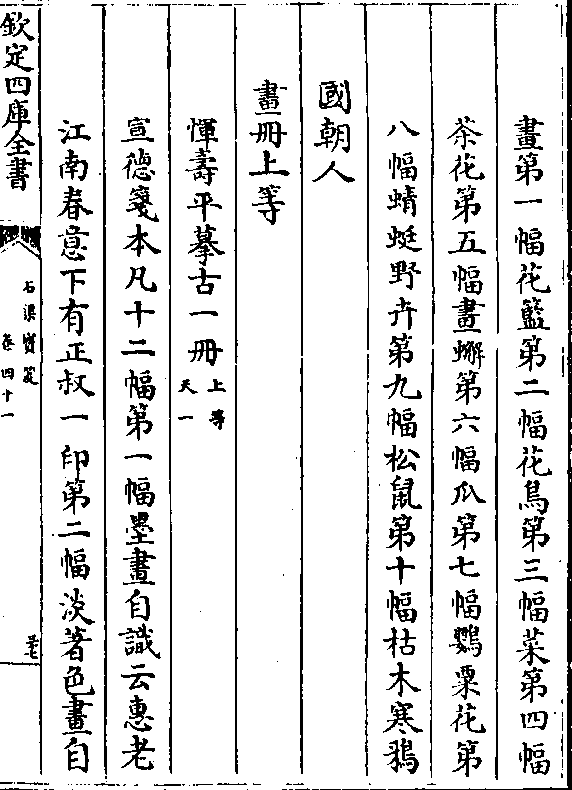 畫第一幅花籃第二幅花鳥第三幅菜第四幅
茶花第五幅畫蠏第六幅瓜第七幅鸎粟花第
八幅蜻蜓野卉第九幅松鼠第十幅枯木寒鴉
國朝人
畫冊上等
惲壽平摹古一冊上等天一
宣德箋本凡十二幅第一幅墨畫自識云惠老
江南春意下有正叔一印第二幅淡著色畫自
欽定四庫全書
石渠寶笈
卷四十一